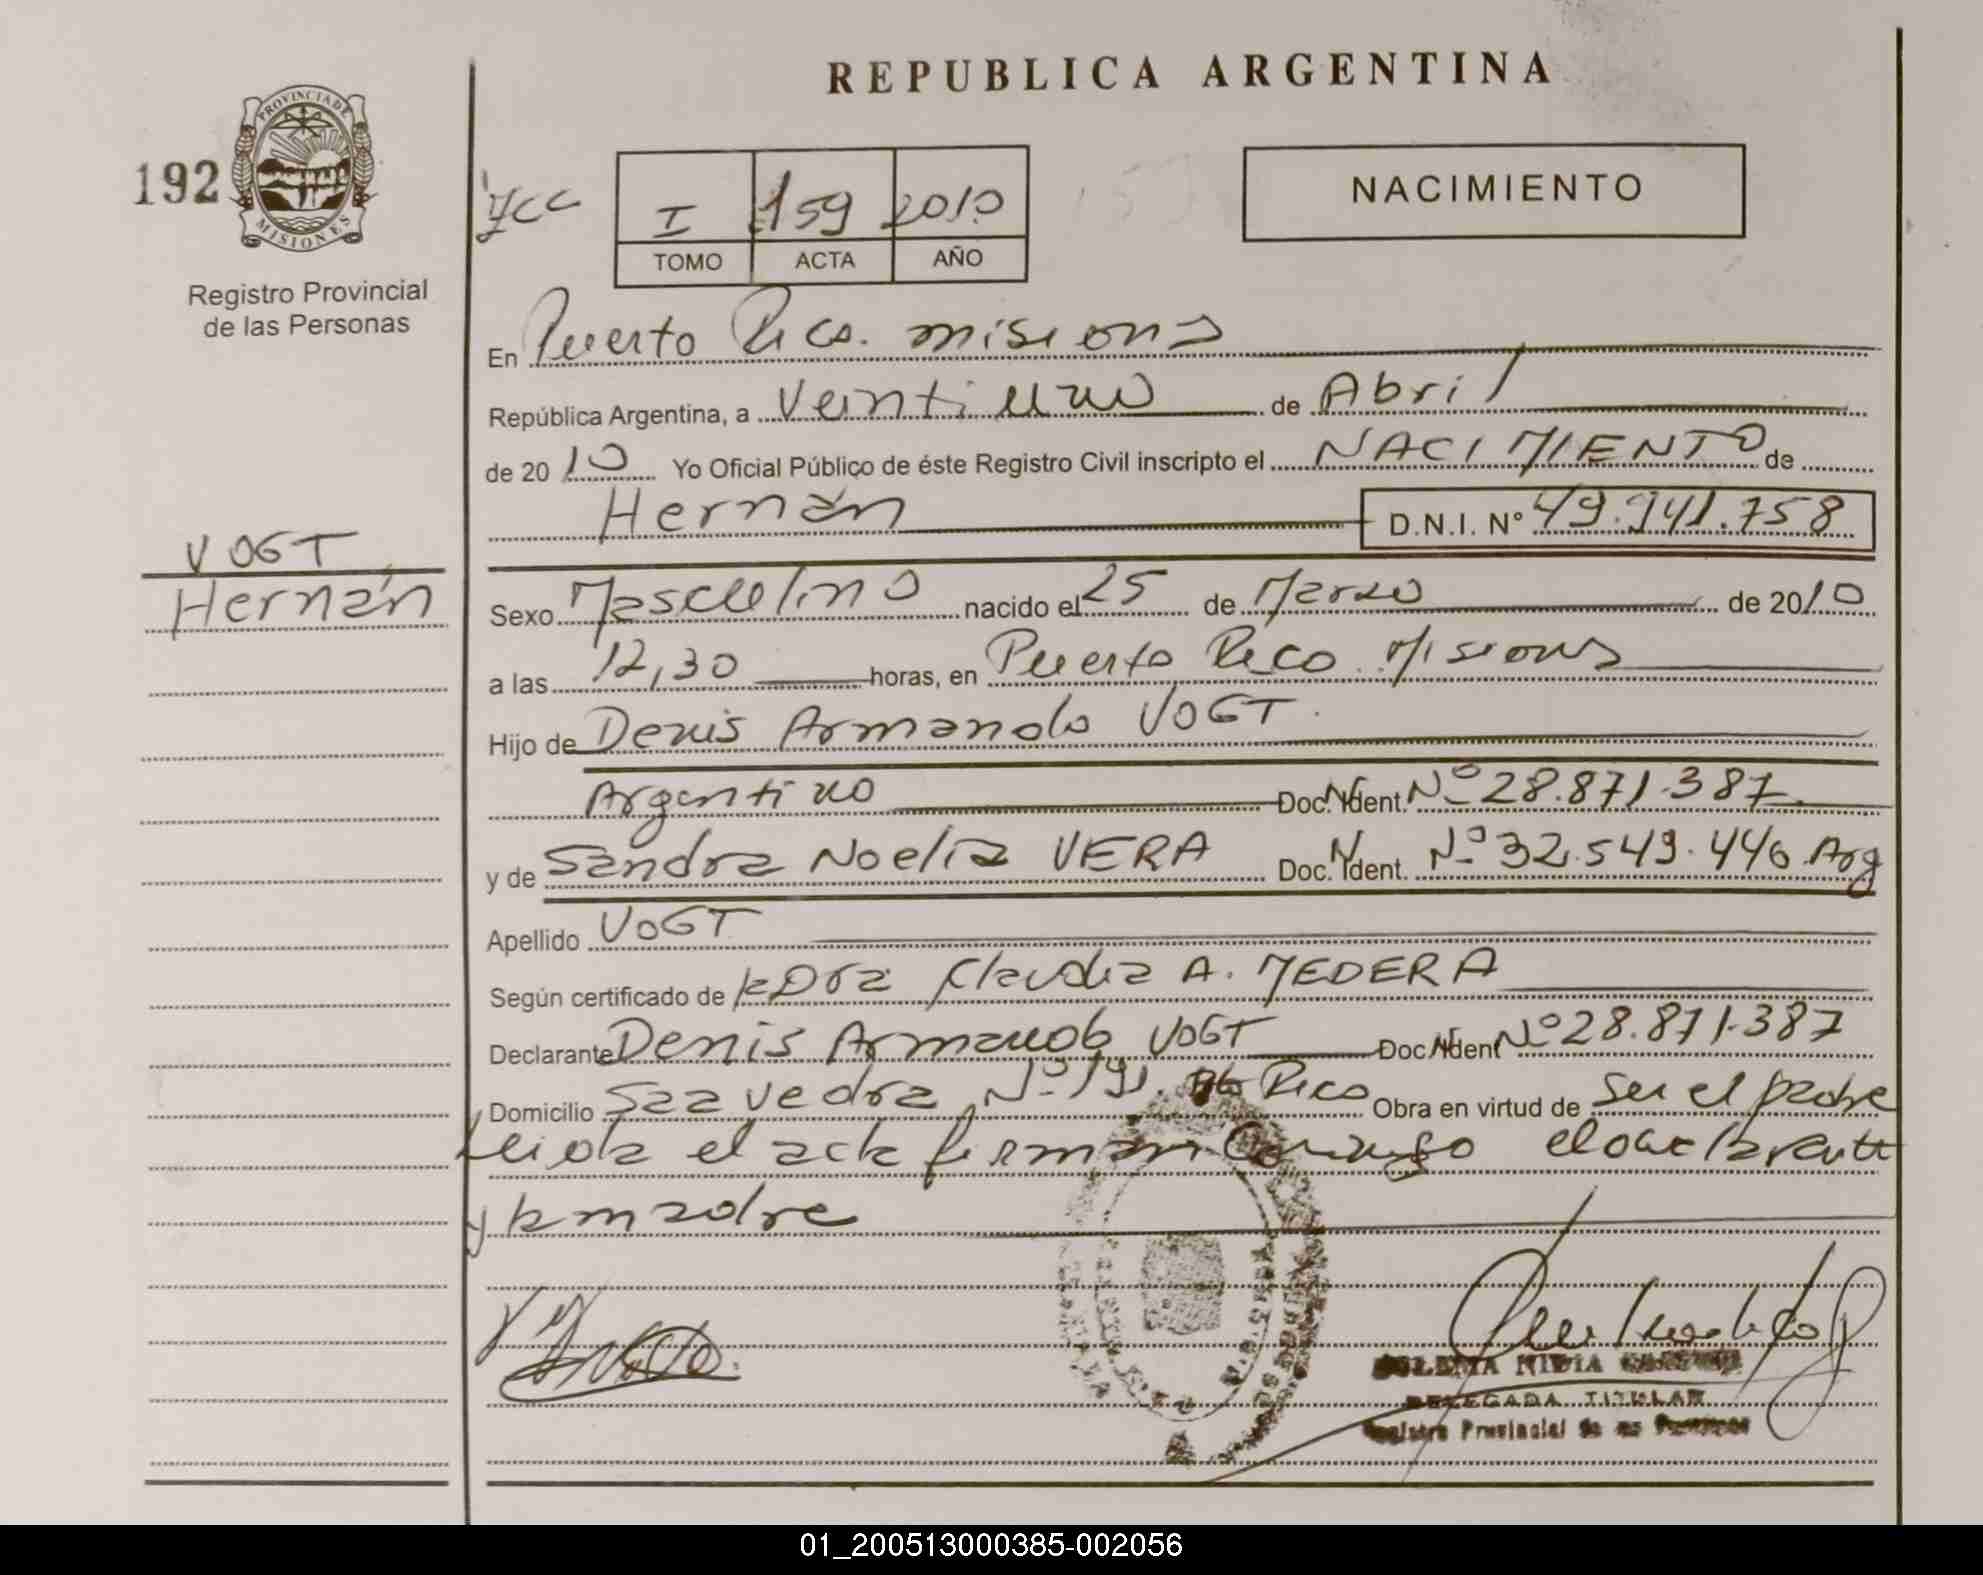 REPUBLICA ARGENTINA
192
PROVINCIA DE
MISIONES
Registro Provincial
de las Personas
I 159 2010
TOMO ACTA AÑO
NACIMIENTO
En Puerto Rico. Misiones
República Argentina, a Veintiuno de Abril
de 2010 Yo Oficial Público de éste Registro Civil inscripto el NACIMIENTO de
Hernán D.N.I. N° 49.941.758
VOGT
Hernán
Sexo Masculino nacido el 25 de Marzo de 2010
a las 12,30 horas, en Puerto Rico. Misiones
Hijo de Denis Armando VOGT.
Argentino Doc. Ident. Nº 28.871.387
y de Sandra Noelia VERA Doc. Ident. Nº 32.549.446 Arg
Apellido VOGT
Según certificado de la Dra Claudia A. MEDERA
Declarante Denis Armando VOGT Doc. Ident Nº 28.871.387
Domicilio Saavedra Nº 191. Pto Rico Obra en virtud de ser el padre
Leida el acta firman conmigo el declarante
y la madre
NIDIA
DELEGADA TITULAR
Registro Provincial de las Personas
01_200513000385-002056